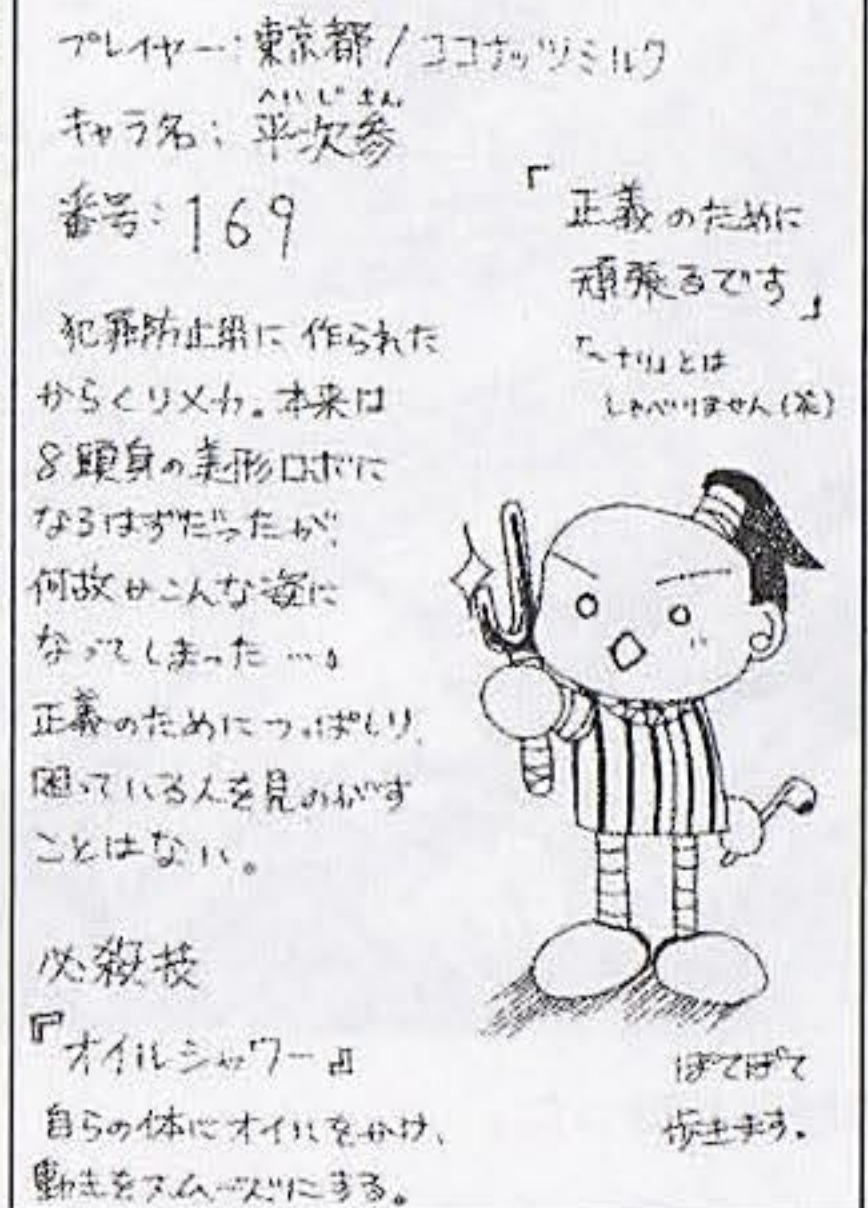 プレイヤー:東京都/ココナッツミルク
へいじさん
キャラ名:平次参
番号:169
犯罪防止用に作られた
からくりメカ。本来は
8頭身の美形ロボに
なるはずだったが、
何故かこんな姿に
なってしまった…。
正義のためにつっぱしり、
困っている人を見のがす
ことはない。
必殺技
『オイルシャワー』
自らの体にオイルをかけ、
動きをスムーズにする。
「正義のために
頑張るです」
「〜ナリ」とは
しゃべりません(笑)
ぽてぽて
歩きます。